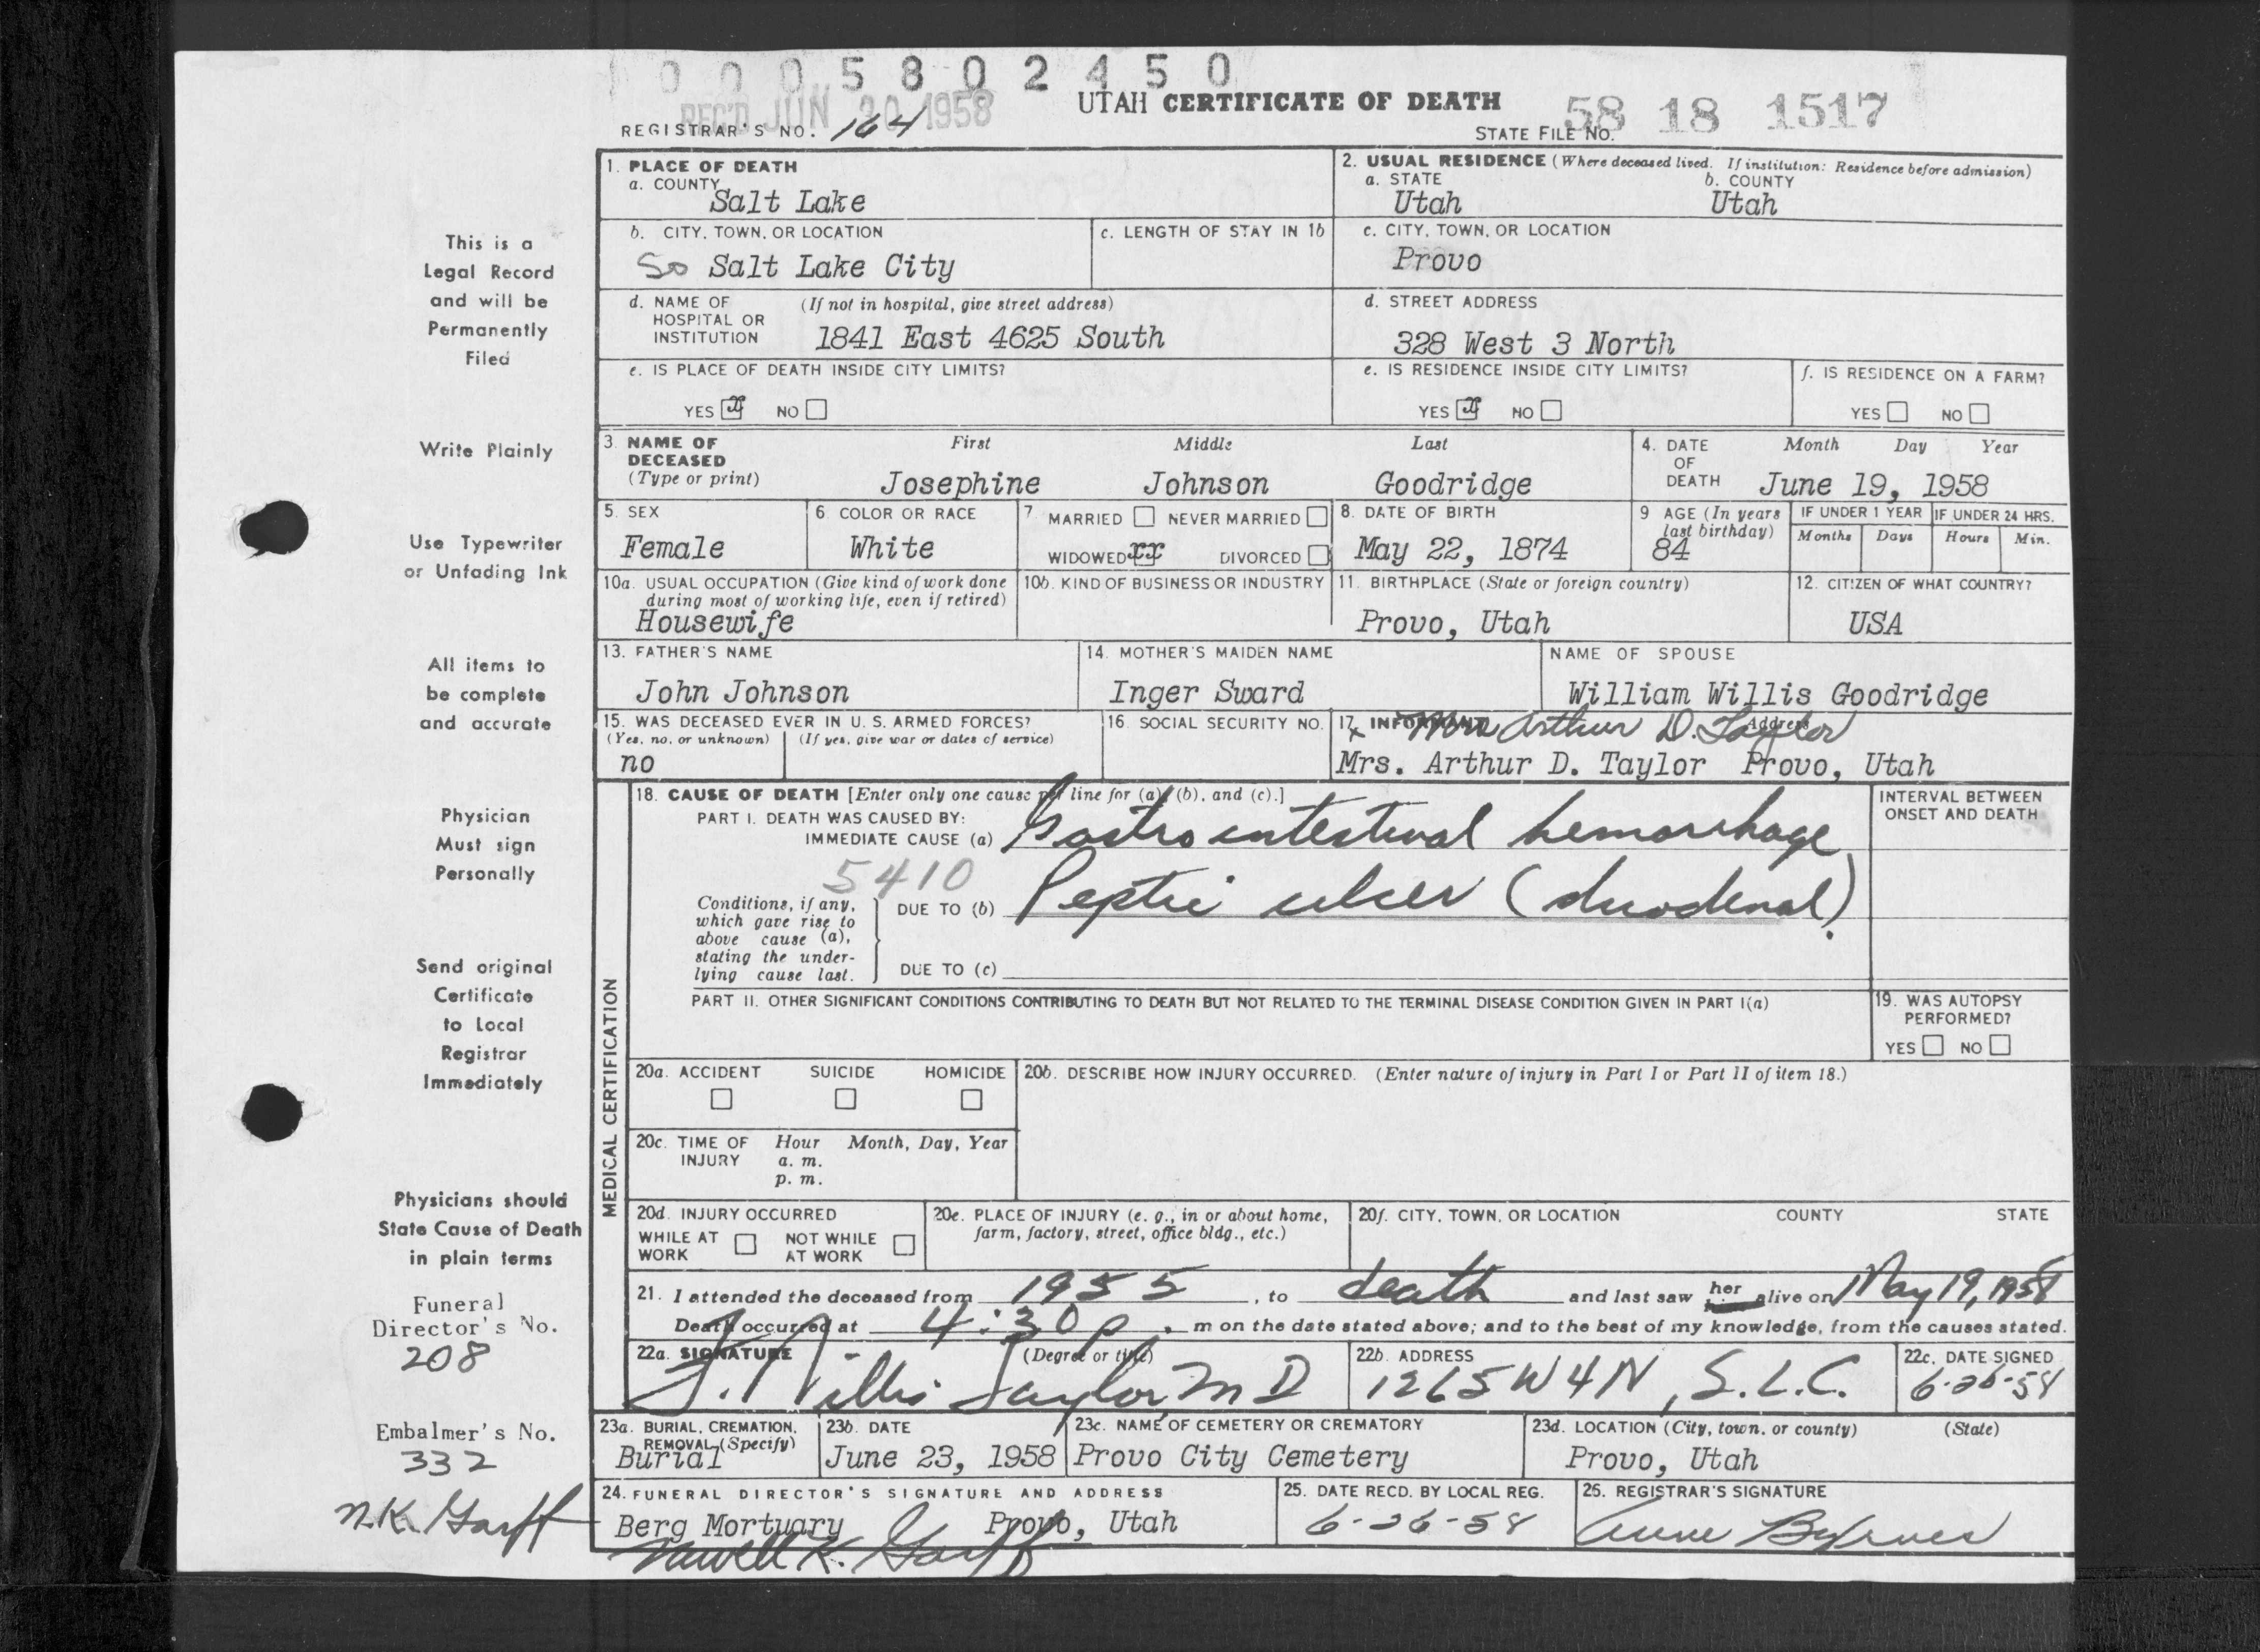 0 0 0 5 8 0 2 4 5 0
REC'D JUN 30 1958
UTAH CERTIFICATE OF DEATH
REGISTRAR'S NO. 164
STATE FILE NO. 58 18 1517
This is a
Legal Record
and will be
Permanently
Filed
Write Plainly
Use Typewriter
or Unfading Ink
All items to
be complete
and accurate
Physician
Must sign
Personally
Send original
Certificate
to Local
Registrar
Immediately
Physicians should
State Cause of Death
in plain terms
Funeral
Director's No.
208
Embalmer's No.
332
N.K. Garff
1. PLACE OF DEATH
a. COUNTY
Salt Lake
2. USUAL RESIDENCE (Where deceased lived. If institution: Residence before admission)
a. STATE b. COUNTY
Utah Utah
b. CITY, TOWN, OR LOCATION
So Salt Lake City
c. LENGTH OF STAY IN 1b
c. CITY, TOWN, OR LOCATION
Provo
d. NAME OF (If not in hospital, give street address)
HOSPITAL OR
INSTITUTION 1841 East 4625 South
d. STREET ADDRESS
328 West 3 North
e. IS PLACE OF DEATH INSIDE CITY LIMITS?
YES x NO
e. IS RESIDENCE INSIDE CITY LIMITS?
YES x NO
f. IS RESIDENCE ON A FARM?
YES NO
3. NAME OF DECEASED (Type or print)
First Middle Last
Josephine Johnson Goodridge
4. DATE OF DEATH
Month Day Year
June 19, 1958
5. SEX
Female
6. COLOR OR RACE
White
7. MARRIED NEVER MARRIED
WIDOWED xx DIVORCED
8. DATE OF BIRTH
May 22, 1874
9 AGE (In years last birthday)
84
IF UNDER 1 YEAR
Months Days
IF UNDER 24 HRS.
Hours Min.
10a. USUAL OCCUPATION (Give kind of work done
during most of working life, even if retired)
Housewife
10b. KIND OF BUSINESS OR INDUSTRY
11. BIRTHPLACE (State or foreign country)
Provo, Utah
12. CITIZEN OF WHAT COUNTRY?
USA
13. FATHER'S NAME
John Johnson
14. MOTHER'S MAIDEN NAME
Inger Sward
NAME OF SPOUSE
William Willis Goodridge
15. WAS DECEASED EVER IN U. S. ARMED FORCES?
(Yes, no, or unknown) (If yes, give war or dates of service)
no
16. SOCIAL SECURITY NO.
17. INFORMANT Address
x Mrs Arthur D. Taylor
Mrs. Arthur D. Taylor Provo, Utah
MEDICAL CERTIFICATION
18. CAUSE OF DEATH [Enter only one cause per line for (a), (b), and (c).]
PART I. DEATH WAS CAUSED BY:
IMMEDIATE CAUSE (a) Gastro intestinal hemorrhage
5410
Conditions, if any,
which gave rise to
above cause (a),
stating the under-
lying cause last.
DUE TO (b) Peptic ulcer (duodenal).
DUE TO (c)
INTERVAL BETWEEN
ONSET AND DEATH
PART II. OTHER SIGNIFICANT CONDITIONS CONTRIBUTING TO DEATH BUT NOT RELATED TO THE TERMINAL DISEASE CONDITION GIVEN IN PART I(a)
19. WAS AUTOPSY
PERFORMED?
YES NO
20a. ACCIDENT SUICIDE HOMICIDE
20b. DESCRIBE HOW INJURY OCCURRED. (Enter nature of injury in Part I or Part II of item 18.)
20c. TIME OF Hour Month, Day, Year
INJURY a. m.
p. m.
20d. INJURY OCCURRED
WHILE AT WORK NOT WHILE AT WORK
20e. PLACE OF INJURY (e. g., in or about home,
farm, factory, street, office bldg., etc.)
20f. CITY, TOWN, OR LOCATION COUNTY STATE
21. I attended the deceased from 1955, to death and last saw her him alive on May 19, 1958
Death occurred at 4:30 p. m on the date stated above; and to the best of my knowledge, from the causes stated.
22a. SIGNATURE (Degree or title)
J. Willis Taylor, M D
22b. ADDRESS
1265 W 4 N, S.L.C.
22c. DATE SIGNED
6-26-58
23a. BURIAL, CREMATION,
REMOVAL (Specify)
Burial
23b. DATE
June 23, 1958
23c. NAME OF CEMETERY OR CREMATORY
Provo City Cemetery
23d. LOCATION (City, town, or county) (State)
Provo, Utah
24. FUNERAL DIRECTOR'S SIGNATURE AND ADDRESS
Berg Mortuary Provo, Utah
Newell K. Garff
25. DATE RECD. BY LOCAL REG.
6-26-58
26. REGISTRAR'S SIGNATURE
Anne